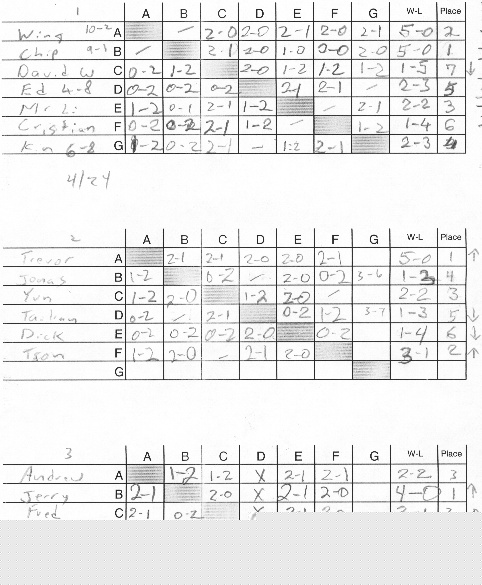 1 A B C D E F G W-L Place
Wing 10-2 A / 2-0 2-0 2-1 2-0 2-1 5-0 2
Chip 9-1 B / 2-1 2-0 1-0 2-0 5-0 1
David W C 0-2 1-2 2-0 1-2 1-2 1-2 1-5 7 ↓
Ed 4-8 D 0-2 0-2 0-2 2-1 2-1 - 2-3 5
Mr Li E 1-2 0-1 2-1 1-2 / 2-1 2-2 3
Cristian F 0-2 0-2 2-1 1-2 / 1-2 1-4 6
6-8 G 1-2 0-2 2-1 - 1-2 2-1 2-3 4
4/24
2 A B C D E F G W-L Place
Trevor A 2-1 2-1 2-0 2-0 2-1 5-0 1 ↑
Jonas B 1-2 0-2 / 2-0 0-2 3-6 4
Yun C 1-2 2-0 1-2 2-0 2-2 3
D 0-2 / 2-1 0-2 1-2 3-7 1-3 5 ↓
Dick E 0-2 0-2 0-2 2-0 0-2 1-4 6 ↓
F 1-2 2-0 - 2-1 2-0 3-1 2 ↑
G
3 A B C D E F G W-L Place
Andrew A 1-2 1-2 X 2-1 2-1 2-2 3
Jerry B 2-1 2-0 X 2-1 2-0 4-0 1 ↑
Fred C 2-1 0-2